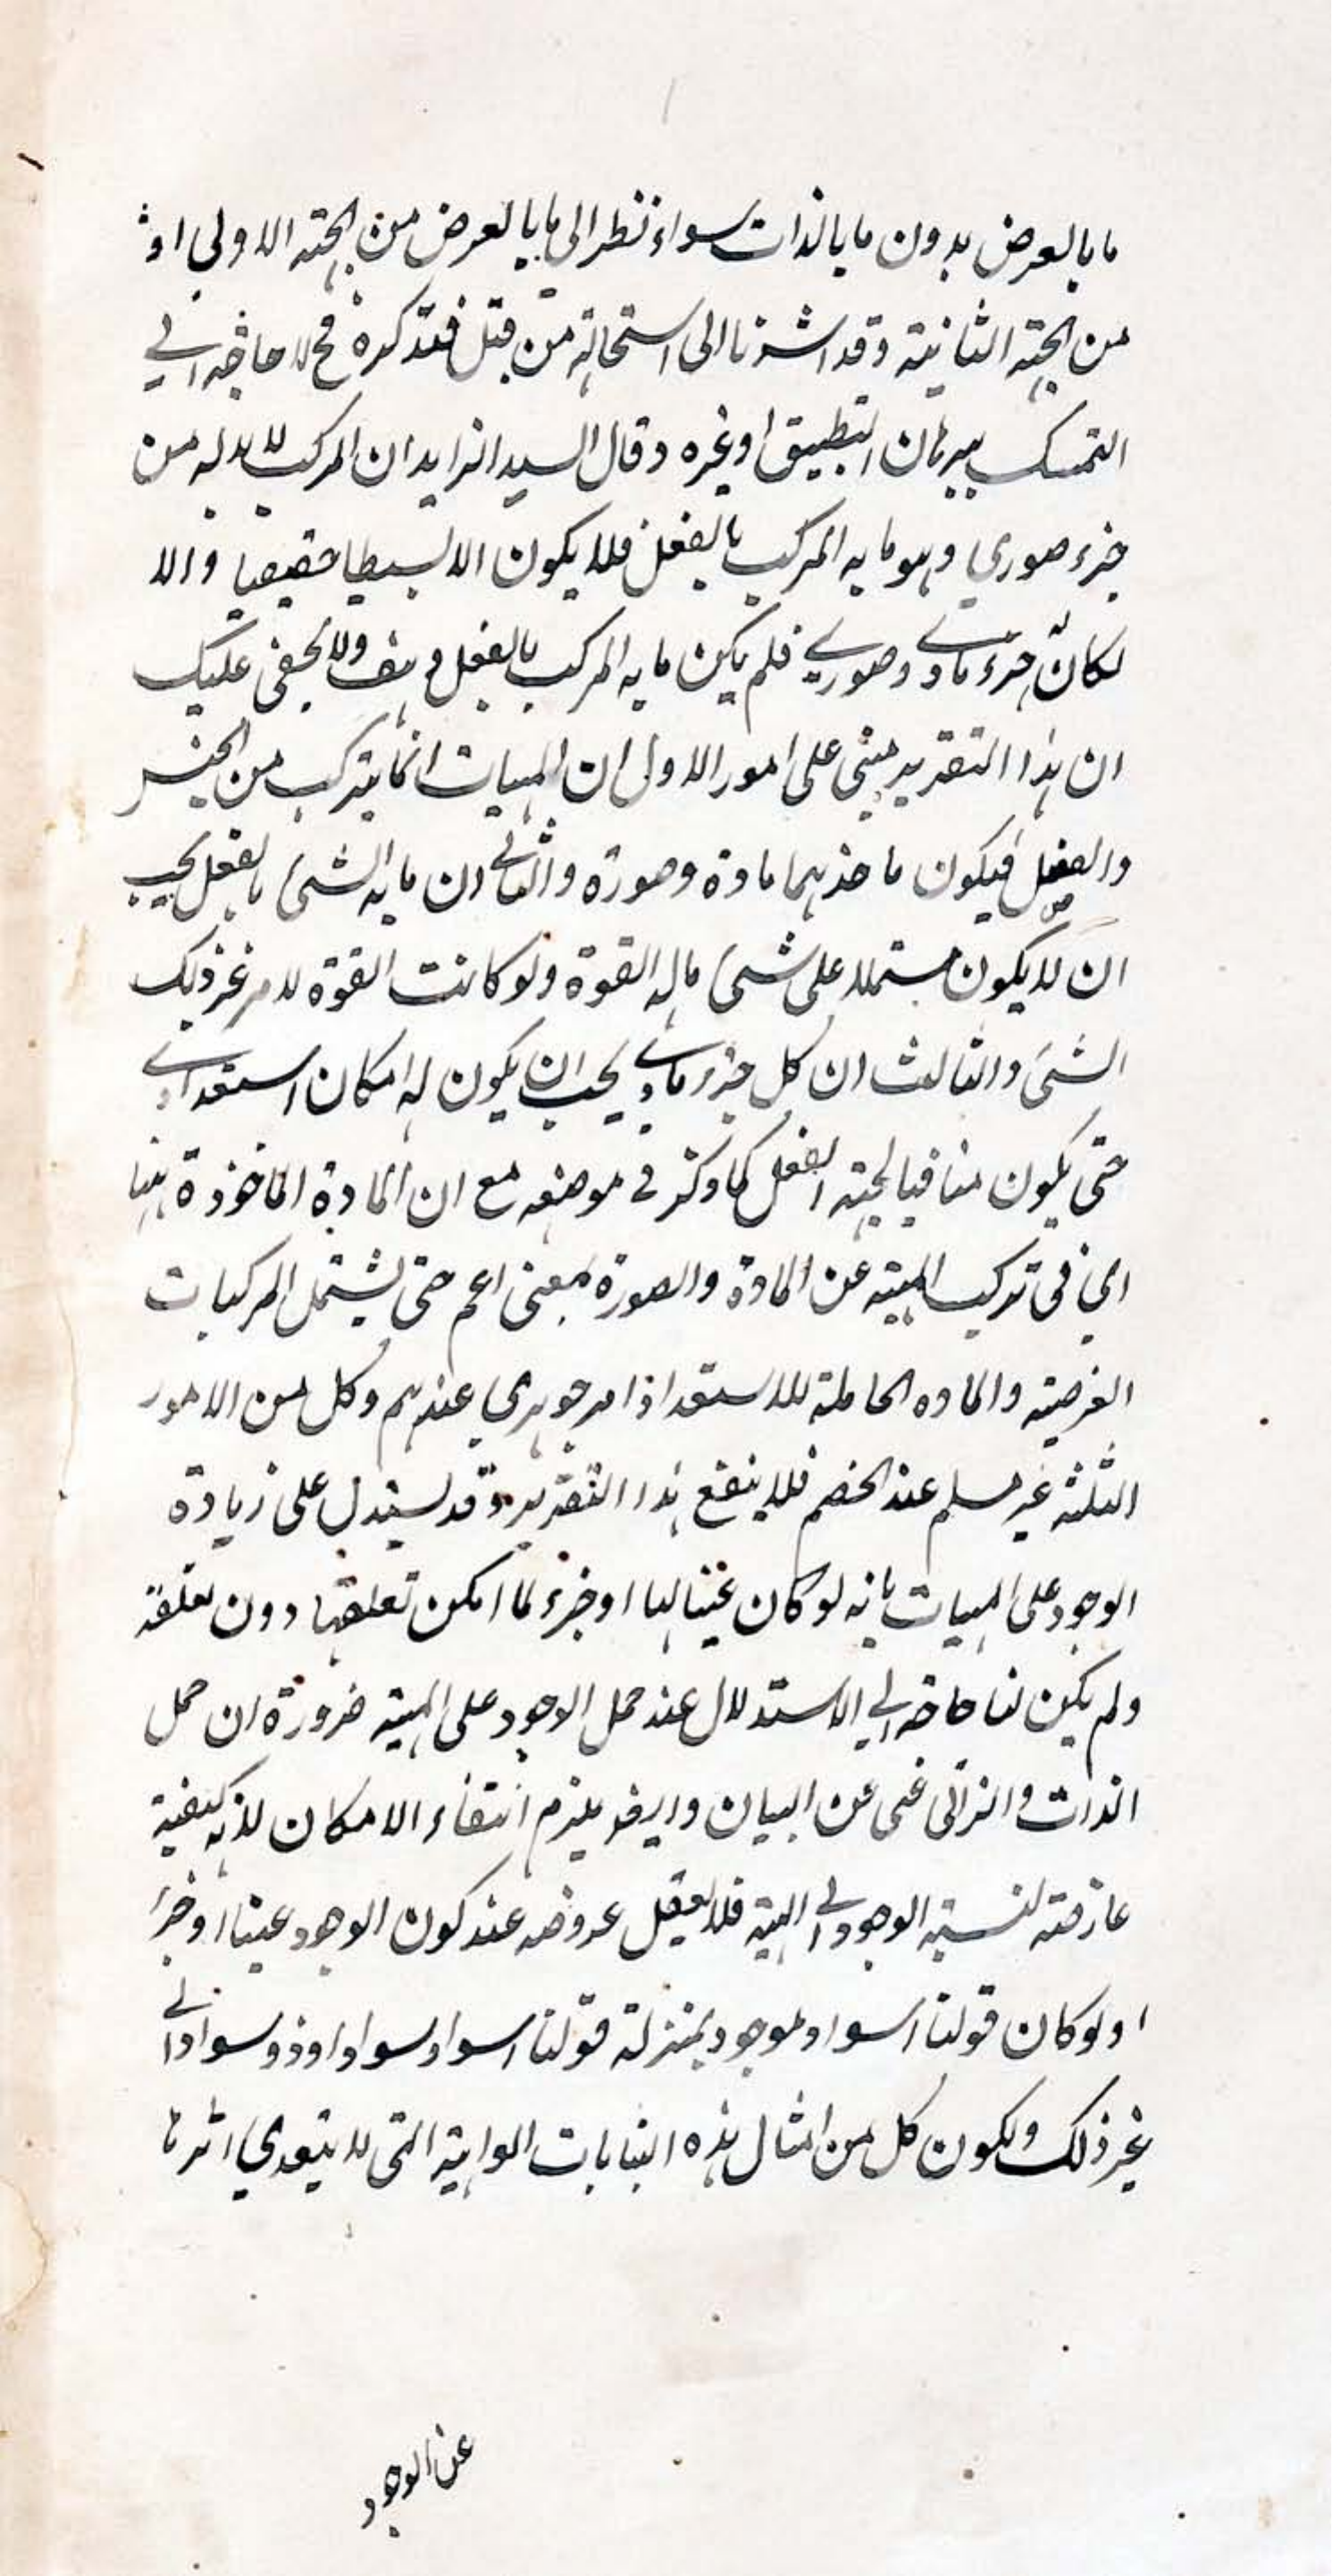 ما بالعرض بدون ما بالذات سواء نظر الى ما بالعرض من الجهة الاولى او
من الجهة الثانية وقد اشرنا الى استحالته من قبل فتذكره فح لا حاجة الى
التمسك ببرهان التطبيق او غيره وقال السيد الزاهد ان المركب لا بد له من
جزء صوري وهو ما به المركب بالفعل فلا يكون الا بسيطا حقيقيا والا
لكان جزء مادي وصوري فلم يكن ما به المركب بالفعل هف ولا يخفى عليك
ان هذا التقرير مبنى على امور الاول ان المهيات انما يتركب من الجنس
والفصل فيكون ماخذهما مادة وصورة والثاني ان ما به الشئ بالفعل يجب
ان لا يكون مشتملا على شئ ماله القوة ولو كانت القوة لامر غير ذلك
الشئ والثالث ان كل جزء مادي يجب ان يكون له امكان استعدادي
حتى يكون منافيا لجهة الفعل كما ذكر في موضعه مع ان المادة الماخوذة ههنا
اي في تركيب المهية عن المادة والصورة بمعنى اعم حتى يشتمل المركبات
العرضية والماده الحاملة للاستعداد امر جوهري عندهم وكل من الامور
الثلثة غير مسلم عند الخصم فلا ينفع هذا التقرير وقد يستدل على زيادة
الوجود على المهيات بانه لو كان عينا لها او جزء لما امكن تعلقها دون تعلقه
ولم يكن لنا حاجة الى الاستدلال عند حمل الوجود على المهية ضرورة ان حمل
الذات والذاتى غنى عن البيان وايضا يلزم انتفاء الامكان لانه كيفية
عارضة لنسبة الوجود الى المهية فلا يعقل عروضه عند كون الوجود عينا او جزء
ولو كان قولنا السواد موجود بمنزلة قولنا السواد سواد او ذو سواد الى
غير ذلك ولكون كل من امثال هذه البنايات الواهية التى لا يتعدى اثرها
عن الوجود